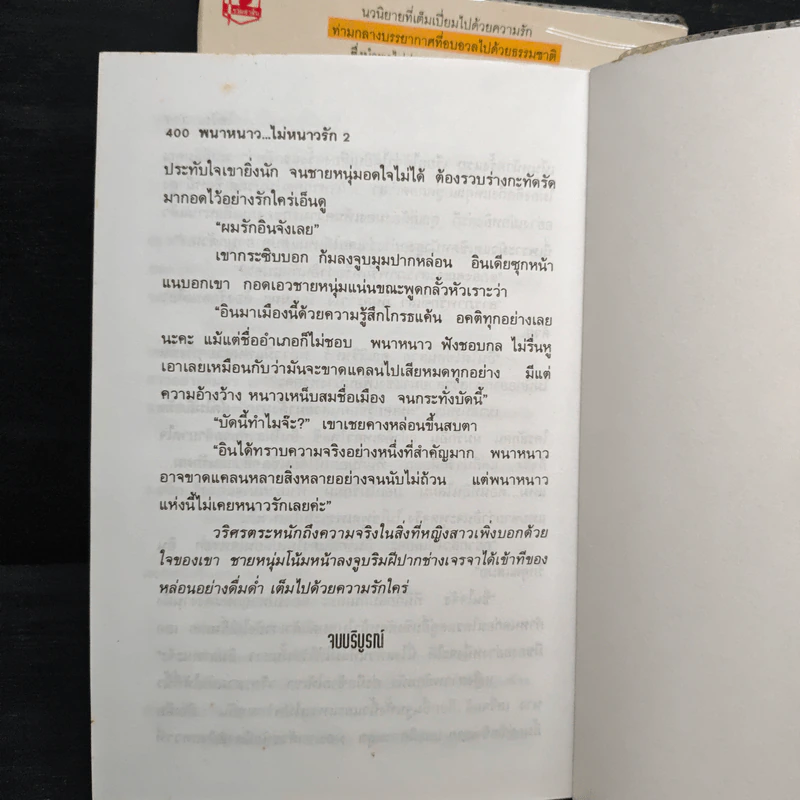 นวนิยายที่เต็มเปี่ยมไปด้วยความรัก
ท่ามกลางบรรยากาศที่อบอวลไปด้วยธรรมชาติ
400 พนาหนาว...ไม่หนาวรัก 2
ประทับใจเขายิ่งนัก จนชายหนุ่มอดใจไม่ได้ ต้องรวบร่างกะทัดรัด
มากอดไว้อย่างรักใคร่เอ็นดู
“ผมรักอินจังเลย”
เขากระซิบบอก ก้มลงจูบมุมปากหล่อน อินเดียซุกหน้า
แนบอกเขา กอดเอวชายหนุ่มแน่นขณะพูดกลั้วหัวเราะว่า
“อินมาเมืองนี้ด้วยความรู้สึกโกรธแค้น อคติทุกอย่างเลย
นะคะ แม้แต่ชื่ออำเภอก็ไม่ชอบ พนาหนาว ฟังชอบกล ไม่รื่นหู
เอาเลยเหมือนกับว่ามันจะขาดแคลนไปเสียหมดทุกอย่าง มีแต่
ความอ้างว้าง หนาวเหน็บสมชื่อเมือง จนกระทั่งบัดนี้”
“บัดนี้ทำไมจ๊ะ?” เขาเชยคางหล่อนขึ้นสบตา
“อินได้ทราบความจริงอย่างหนึ่งที่สำคัญมาก พนาหนาว
อาจขาดแคลนหลายสิ่งหลายอย่างจนนับไม่ถ้วน แต่พนาหนาว
แห่งนี้ไม่เคยหนาวรักเลยค่ะ”
วริศรตระหนักถึงความจริงในสิ่งที่หญิงสาวเพิ่งบอกด้วย
ใจของเขา ชายหนุ่มโน้มหน้าลงจูบริมฝีปากช่างเจรจาได้เข้าทีของ
หล่อนอย่างดื่มด่ำ เต็มไปด้วยความรักใคร่
จบบริบูรณ์